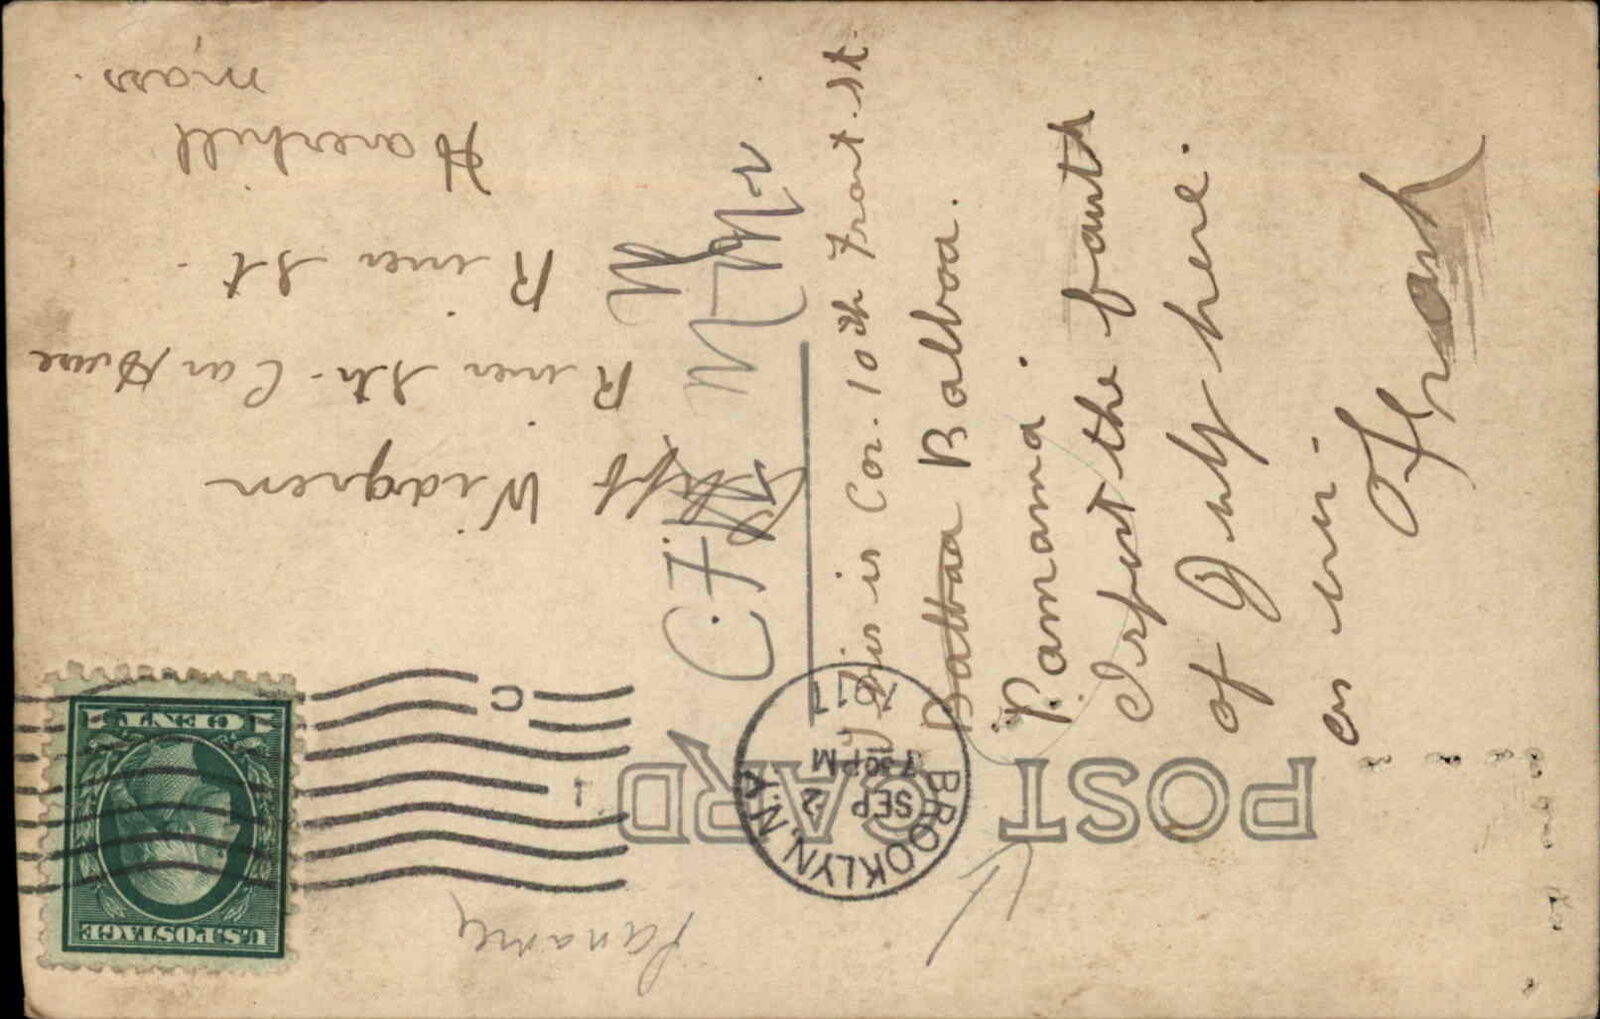 POST CARD
U.S. POSTAGE
1 CENT 1
BROOKLYN, N.Y.
SEP 2
7 30 PM
1911
C
1
Panama
This is Cor. 10th Front St.
Balboa Balboa.
Panama.
I spent the fourth
of July here.
as ever.
Frank
Widgren
River St. Car House
River St.
Haverhill
Mass.
C. F.